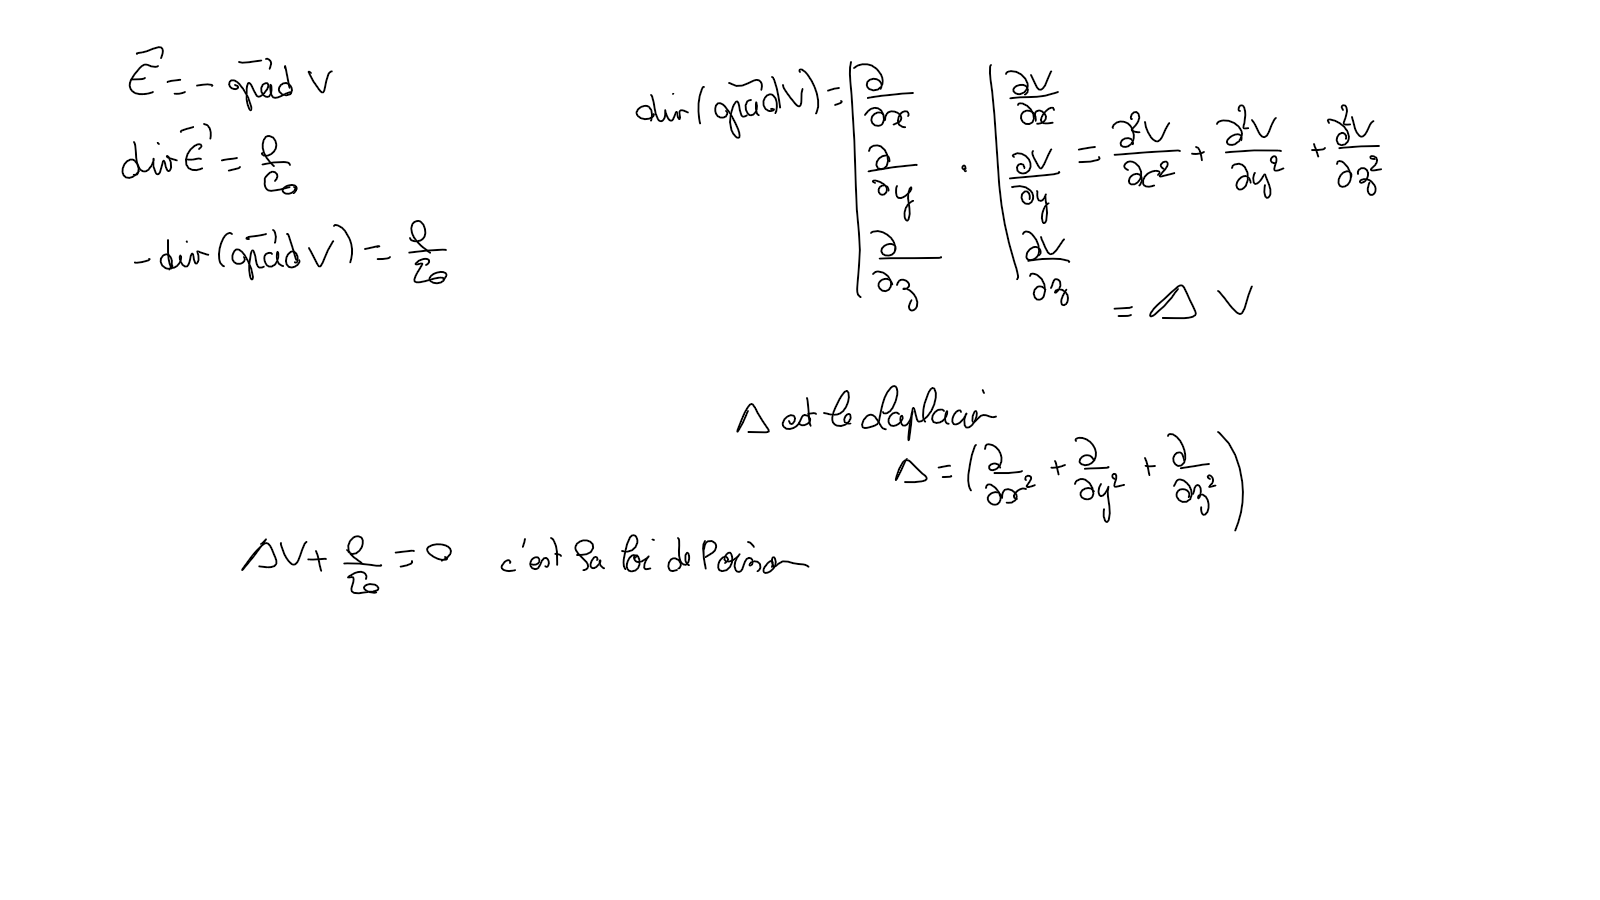 E⃗ = - grad⃗ V
div E⃗ = ρ/ε₀
- div (grad⃗ V) = ρ/ε₀
div (grad⃗ V) = | ∂/∂x ∂/∂y ∂/∂z . | ∂V/∂x ∂V/∂y ∂V/∂z = ∂²V/∂x² + ∂²V/∂y² + ∂²V/∂z²
= Δ V
Δ est le Laplacien
Δ = (∂/∂x² + ∂/∂y² + ∂/∂z²)
ΔV + ρ/ε₀ = 0 c'est la loi de Poisson